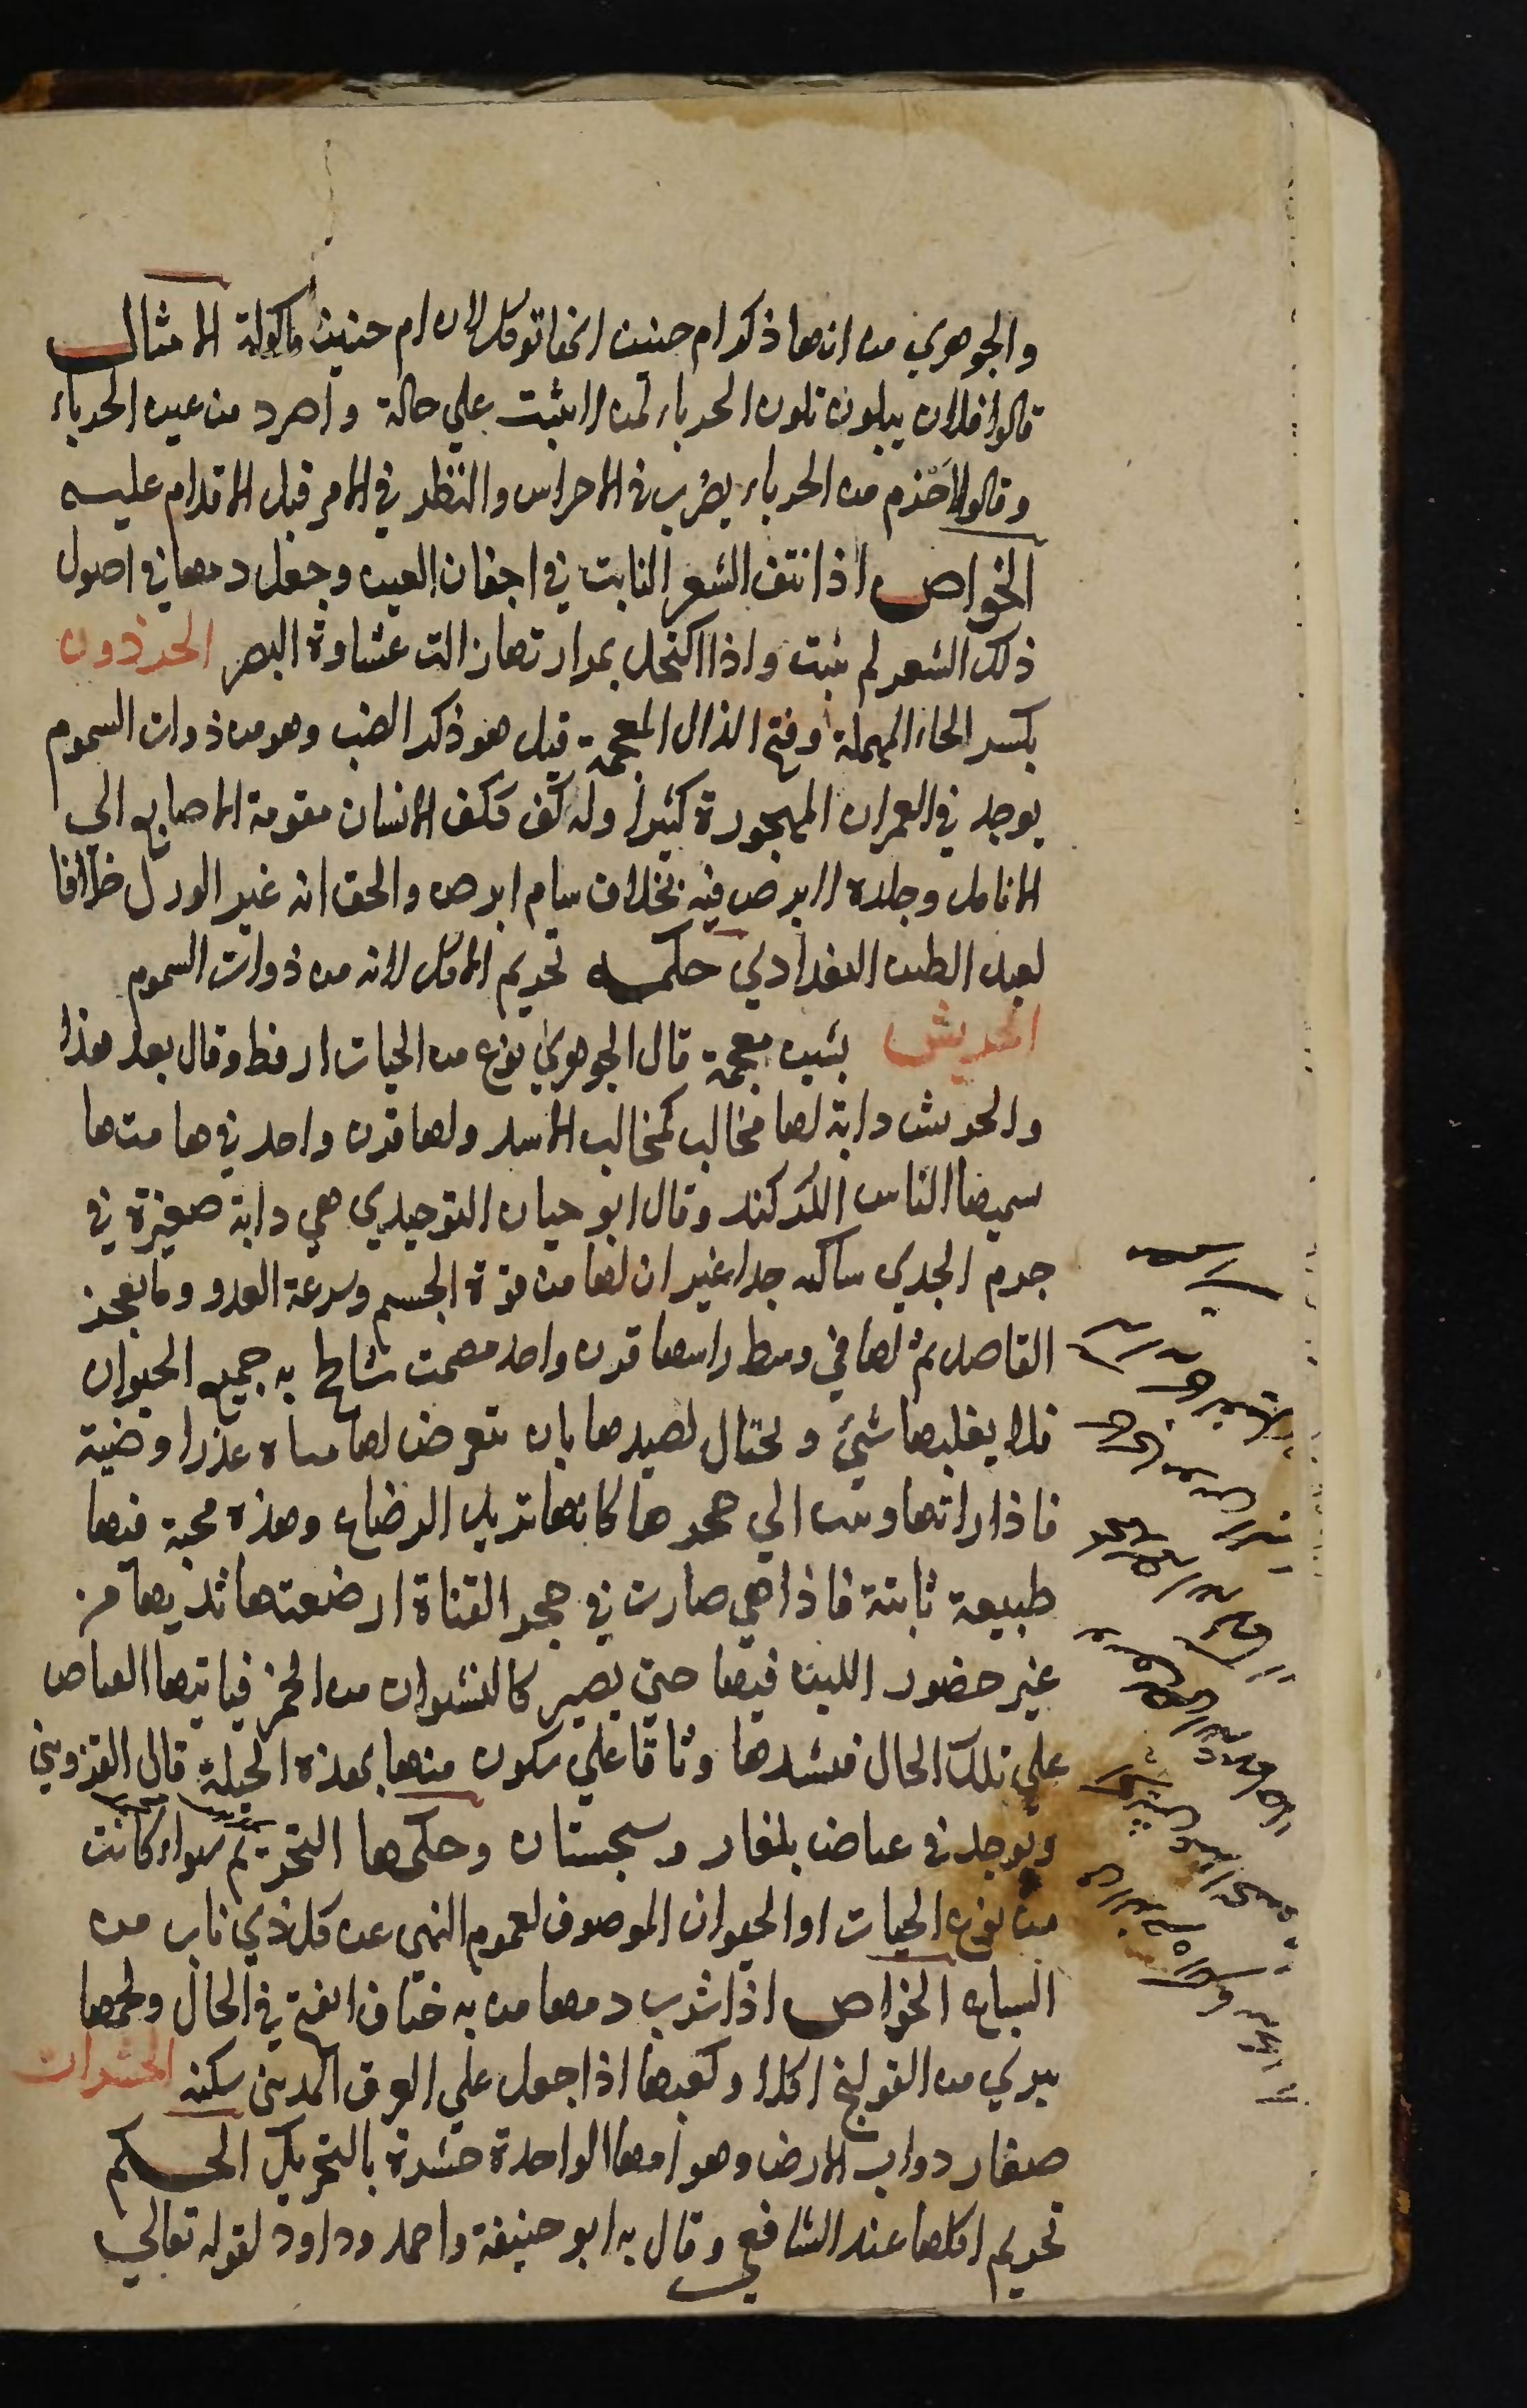 والجوهري من انها ذكر ام حنين انها توكل لان ام حنين ماكولة الامثال
قالوا فلان يتلون تلون الحرباء لمن لا يثبت على حالة واصرد من عين الحرباء
وقالوا احزم من الحرباء يضرب في الاحراس والنظر في الامر قبل الاقدام عليه
الخواص اذا نتف الشعر النابت في اجفان العين وجعل دمها في اصول
ذلك الشعر لم ينبت واذا اكتحل بمرارتها زالت غشاوة البصر الحرذون
بكسر الحاء المهملة وفتح الذال المعجمة قيل هو ذكر الضب وهو من ذوات السموم
يوجد في العمران المهجورة كثيرا وله كف ككف الانسان مقومة الاصابع الي
الانامل وجلده لابرص فيه بخلاف سام ابرص والحق انه غير الورل خلافا
لعبد اللطيف البغدادي حكمه تحريم الاكل لانه من ذوات السموم
الحريش بشين معجمة قال الجوهري نوع من الحيات ارقط وقال بعد هذا
والحريش دابة لها مخالب كمخالب الاسد ولها قرن واحد في هامتها
سميها الناس الكركند وقال ابو حيان التوحيدي هي دابة صغيرة في
جرم الجدي ساكنه جدا غير ان لها من قوة الجسم وسرعة العدو ما يعجز
القاصد ثم لها في وسط راسها قرن واحد مصمت تناطح به جميع الحيوان
فلا يغلبها شيئ ويحتال لصيدها بان تتعرض لها فتاة عذرا وضية
فاذا راتها وثبت الي حجرها كانها تريد الرضاع وهذه محبة فيها
طبيعة ثابتة فاذا هي صارت في حجر الفتاة ارضعتها ثديها من
غير حضور اللبن فيها حتى تصير كالنشوان من الخمر فياتيها القناص
على تلك الحال فيشدها وثاقا على سكون منها بهذه الحيلة قال القزويني
ويوجد في غياض بلغار وسجستان وحكمها التحريم سواء كانت
من نوع الحيات او الحيوان الموصوف لعموم النهي عن كل ذي ناب من
السباع الخواص اذا شرب دمها من به خناق انفتح في الحال ولحمها
يبري من القولنج اكلا وكعبها اذا جعل على العرق المديني سكنه الحشرات
صغار دواب الارض وهوامها الواحدة حشرة بالتحريك الحكم
تحريم اكلها عند الشافعي وقال به ابو حنيفة واحمد وداود لقوله تعالي